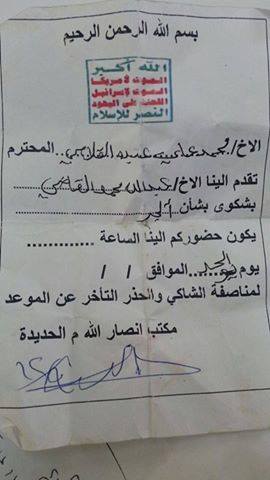 بسم الله الرحمن الرحيم
الله أكبر
الموت لأمريكا
الموت لإسرائيل
اللعنة على اليهود
النصر للإسلام
الاخ/ محمد عبده المحترم
تقدم الينا الاخ/ عبدالله
بشكوى بشأن
يكون حضوركم الينا الساعة ............
يوم الموافق / /
لمناصفة الشاكي والحذر التأخر عن الموعد
مكتب انصار الله م الحديدة